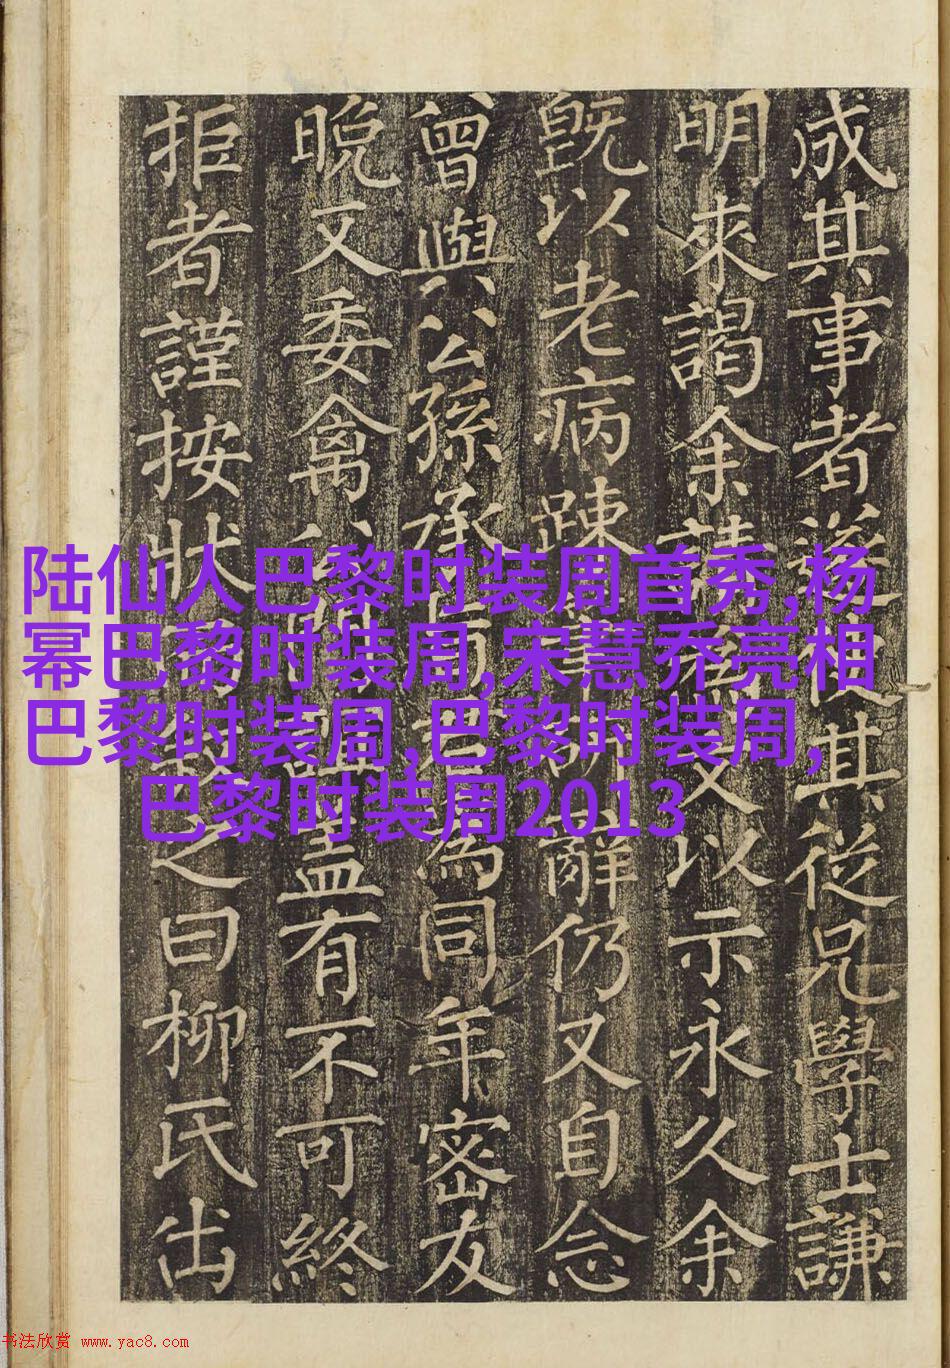 陆仙人巴黎时装周首秀,杨
幂巴黎时装周,宋慧乔亮相
巴黎时装周,巴黎时装周,
巴黎时装周2013
成其事者遂使其從兄學士謙
明來謁余請又以示永久余
旣以老病踈辭仍又自念
曾與公孫承旨爲同年密友
晩又委禽有不可終
拒者謹按狀之曰柳氏出
书法欣赏 www.yac8.com